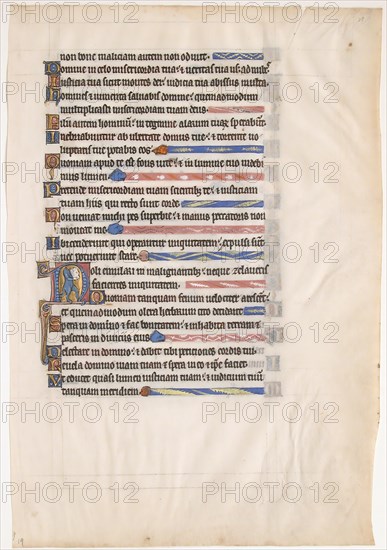 non bone maliciam autem non odivit.
Domine in celo misericordia tua: & veritas tua us
Iusticia tua sicut montes dei: iudicia tua abissus multa.
Homines & iumenta salvabis domine: quemadmodum
multiplicasti misericordiam tuam deus.
Filii autem hominum: in tegmine alarum tuarum sperabunt.
Inebriabuntur ab ubertate domus tue: & torrente vo
luptatis tue potabis eos.
Quoniam apud te est fons vite: & in lumine tuo videbi
mus lumen.
Pretende misericordiam tuam scientibus te: & iusticiam
tuam hiis qui recto sunt corde.
Non veniat michi pes superbie: & manus peccatoris non
moveat me.
Ibi ceciderunt qui operantur iniquitatem: expulsi sunt
nec potuerunt stare.
Noli emulari in malignantibus: neque zelaveris
facientes iniquitatem.
Quoniam tanquam fenum velociter arescent:
et quemadmodum olera herbarum cito decident.
Spera in domino & fac bonitatem: & inhabita terram &
pasceris in diviciis eius.
Delectare in domino: & dabit tibi peticiones cordis tui.
Revela domino viam tuam & spera in eo & ipse faciet.
Et educet quasi lumen iusticiam tuam: & iudicium tuum
tanquam meridiem.
PHOTO12